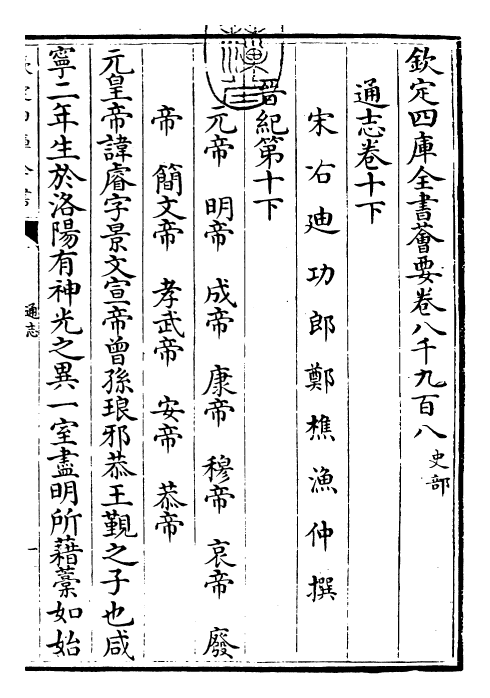 欽定四庫全書薈要卷八千九百八史部
通志卷十下
宋右迪功郎鄭樵漁仲撰
晉紀第十下
元帝　明帝　成帝　康帝　穆帝　哀帝　廢
帝　簡文帝　孝武帝　安帝　恭帝
元皇帝諱睿字景文宣帝曾孫琅邪恭王覲之子也咸
寧二年生於洛陽有神光之異一室盡明所藉藁如始
通志
一